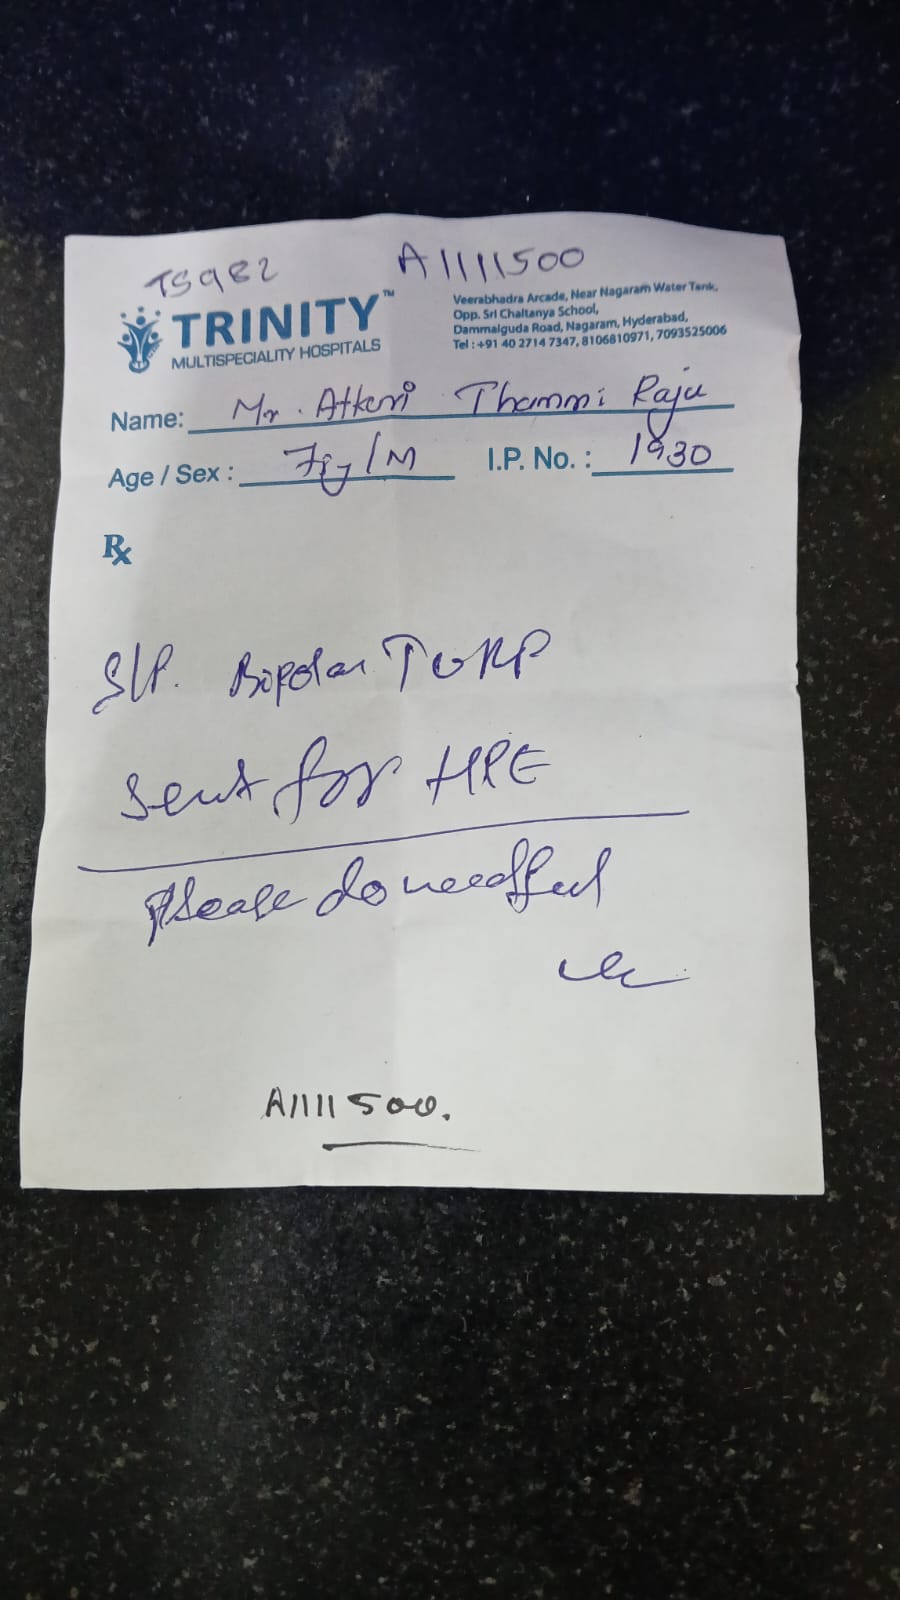 TS982 A1111500
TRINITY™
MULTISPECIALITY HOSPITALS
Veerabhadra Arcade, Near Nagaram Water Tank,
Opp. Sri Chaitanya School,
Dammaiguda Road, Nagaram, Hyderabad,
Tel : +91 40 2714 7347, 8106810971, 7093525006
Name: Mr. Atkuri Thammi Raju
Age / Sex : /M I.P. No. : 1930
Rx
S/P. Bipolar TURP
Sent for HPE
Please do needful
A1111500.